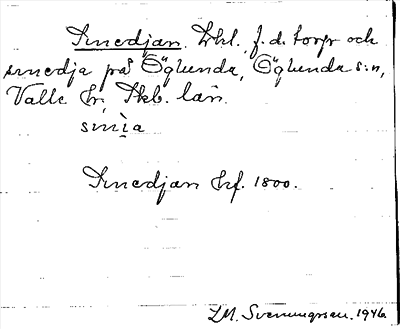 Smedjan. Lhl. f.d. torp och
smedja på Öglunda, Öglunda s:n,
Valle hr, Skb. län.
smia
Smedjan hrf. 1800.
I.M. Svenungsson. 1946